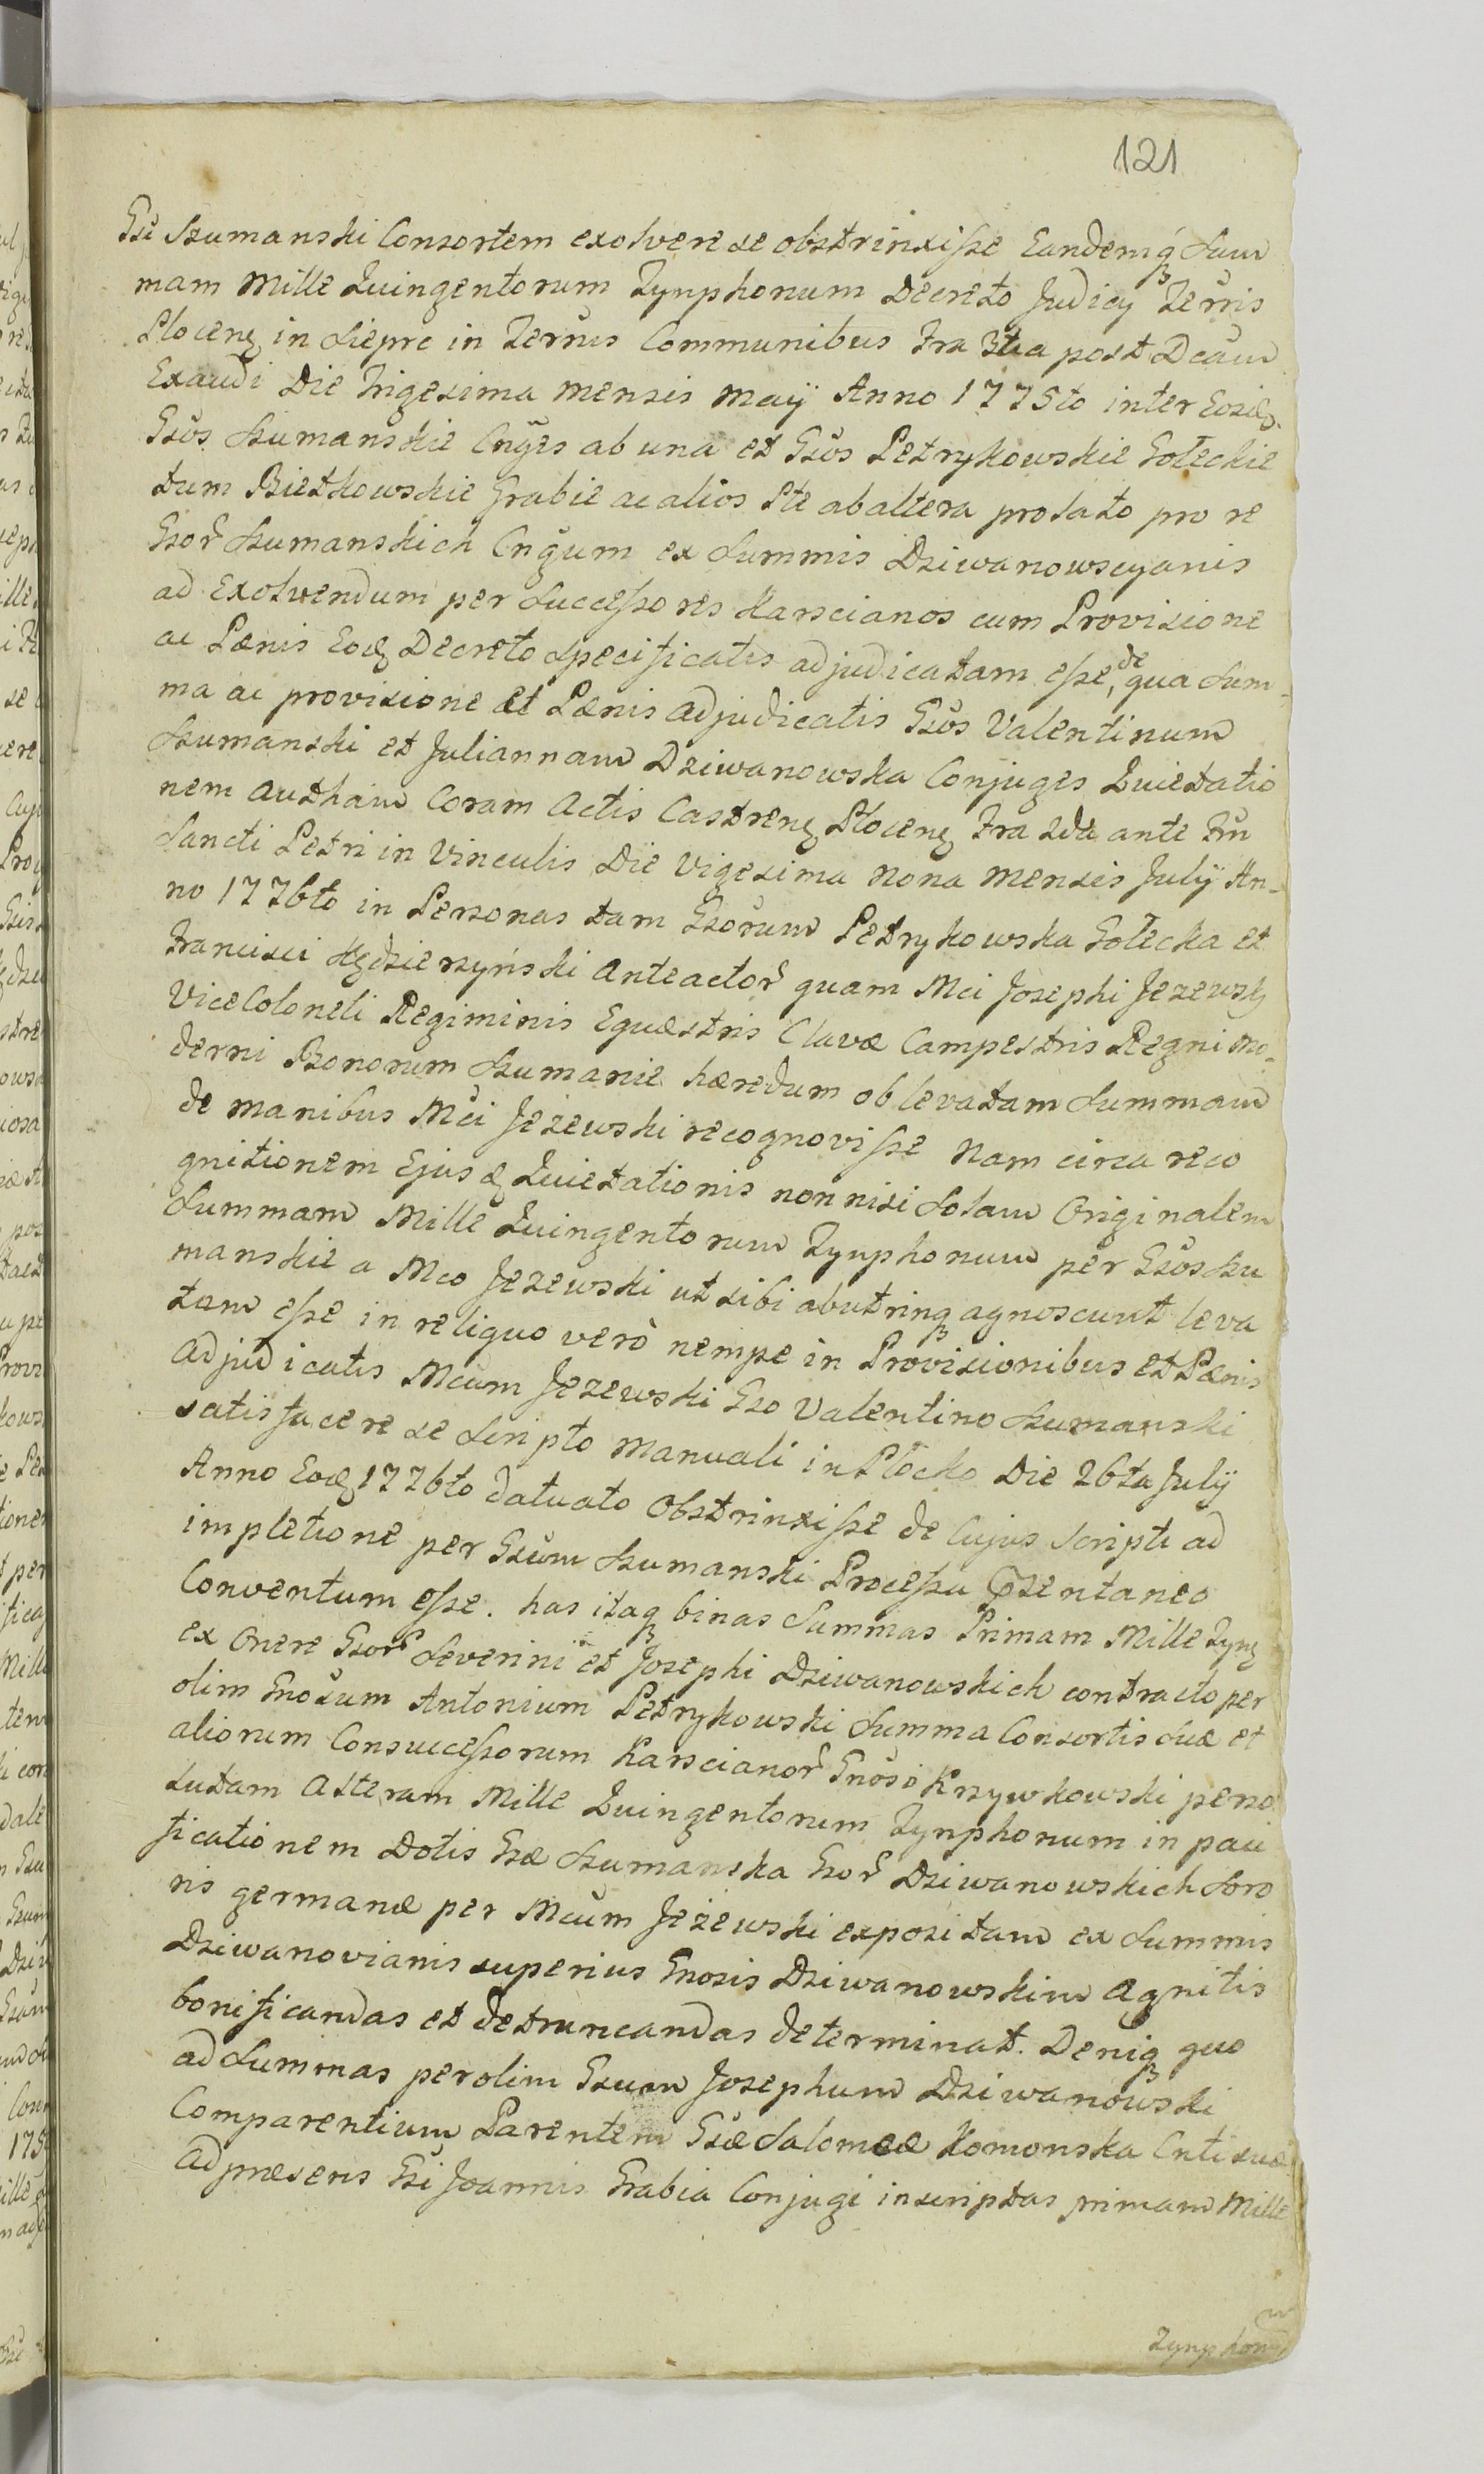 121
Gsi Szumanski Consortem exolvere se obstrinxisse Eandemq Sum
mam Mille Quingentorum Tynphonum Decreto Judicy Terris
Plocens in Sieprc in Termis Communibus Fra 3tia post Dcam
Exaudi Die Trigesima Mensis Maij Anno 1775to inter Eosd
Gsos Szumanskie Cnges ab una et Gsos Petrykowskie Gołeckie
tum Bietkowskie Grabie ac alios Pte ab altera prolato pro re
Gsor Szumanskich Cngum ex Summis Dziwanowscyanis
ad Exolvendum per Successores Karscianos cum Provisione
ac Pænis Eod Decreto Specificatis adjudicatam esse, de qua Sum-
ma ac provisione et Pænis adjudicatis Gsos Valentinum
Szumanski et Juliannam Dziwanowska Conjuges Quietatio
nem Autham Coram Actis Castrens Płocens Fra 2da ante Fm
Sancti Petri in Vinculis Die Vigesima Nona Mensis July An-
no 1776to in Personas tam Gsorum Petrykowska Gołecka et
Francisci Kędzierzyński Anteactor quam Mci Josephi Jezewsk
ViceColoneli Regiminis Equestris Clavæ Campestris Regni Mo-
derni Bonorum Szumanie hæredum ob levatam Summam
de manibus Mci Jeżewski recognovisse Nam circa reco
gnitionem Ejusd Quietationis non nisi Solam Originalem
Summam Mille Quingentorum Tynphonum per Gsos Szu
manskie a Mco Jezewski ut sibi abutrinq agnoscunt leva
tam esse in reliquo verò nempe in Provisionibus et Pænis
Adjudicatis Mcum Jezewski Gso Valentino Szumanski
satisfacere se Scripto Manuali in Płocko Die 26ta Julij
Anno Eod 1776to datuato Obstrinxisse de Cujus Scripti ad
impletione per Gsum Szumanski Processu Præsentaneo
Conventum esse. has itaq binas Summas Primam Mille Tyn
ex Onere Gsor Severini et Josephi Dziwanowskich contracto per
olim Gnosum Antonium Petrykowski Summa Consortis Suæ et
aliorum Consuccessorum Karscianor Gnoso Krzywkowski perso
lutam Alteram Mille Quingentorum Tynphonum in paci
ficationem Dotis Gsæ Szumanska Gsor Dziwanowskich Soro
ris germanæ per Mcum Jeżewski expositam ex Summis
Dziwanovianis superius Gnosis Dziwanowskim Agnitis
bonificandas et detruncandas determinat. Deniq quo
ad Summas per olim Gsum Josephum Dziwanowski
Comparentium Parentem Gsæ Salomeæ Komonska Cnti suæ
Adpræsens Gsi Joannis Grabia Conjugi inscriptas primam Mille